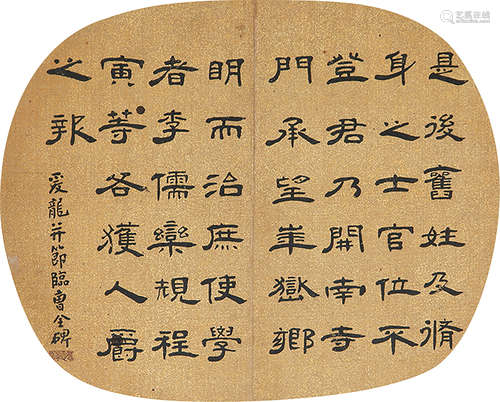 是後舊姓及脩
身之士官位不
登君乃開南寺
門承望崋嶽鄉
眀而治庶使學
者李儒欒規程
寅等各獲人爵
之報
爰龍并節臨曹全碑